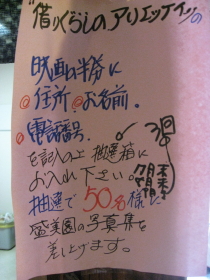 "借りぐらしのアリエッティ"の
映画の半券に
◎住所 ◎お名前。
◎電話番号。
を記入の上 抽選箱に
お入れ下さい。
3回
7月末
8月末
9月末
抽選で50名様に
盛美園の写真集を
差し上げます。